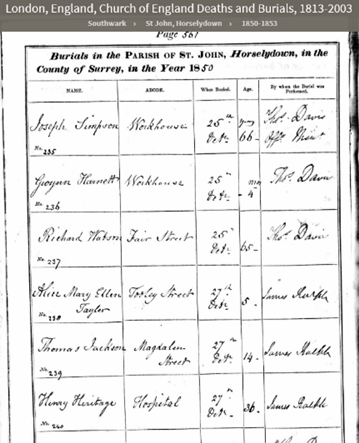 London, England, Church of England Deaths and Burials, 1813-2003
Southwark › St John, Horselydown › 1850-1853
Page 567
Burials in the PARISH OF ST. JOHN, Horselydown, in the
County of Surrey, in the Year 1850
NAME. ABODE. When Buried. Age. By whom the Burial was Performed.
Joseph Simpson Workhouse 25th Octr 66 Thos. Davis
No. 235
Workhouse 25th Octr 4 Thos. Davis
No. 236
Richard Watson Fair Street 25th Octr 65 Thos. Davis
No. 237
Alice Mary Ellen Tooley Street 27th Octr 5 James
Taylor
No. 238
Thomas Jackson Magdalen 27th Octr 14 James
Street
No. 239
Henry Heritage Hospital 27th Octr 36 James
No. 240